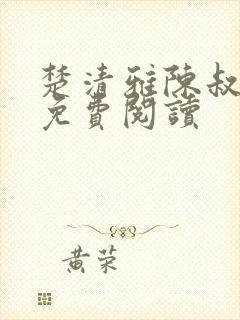 楚清雅陳叔
免費閱讀
黃荣